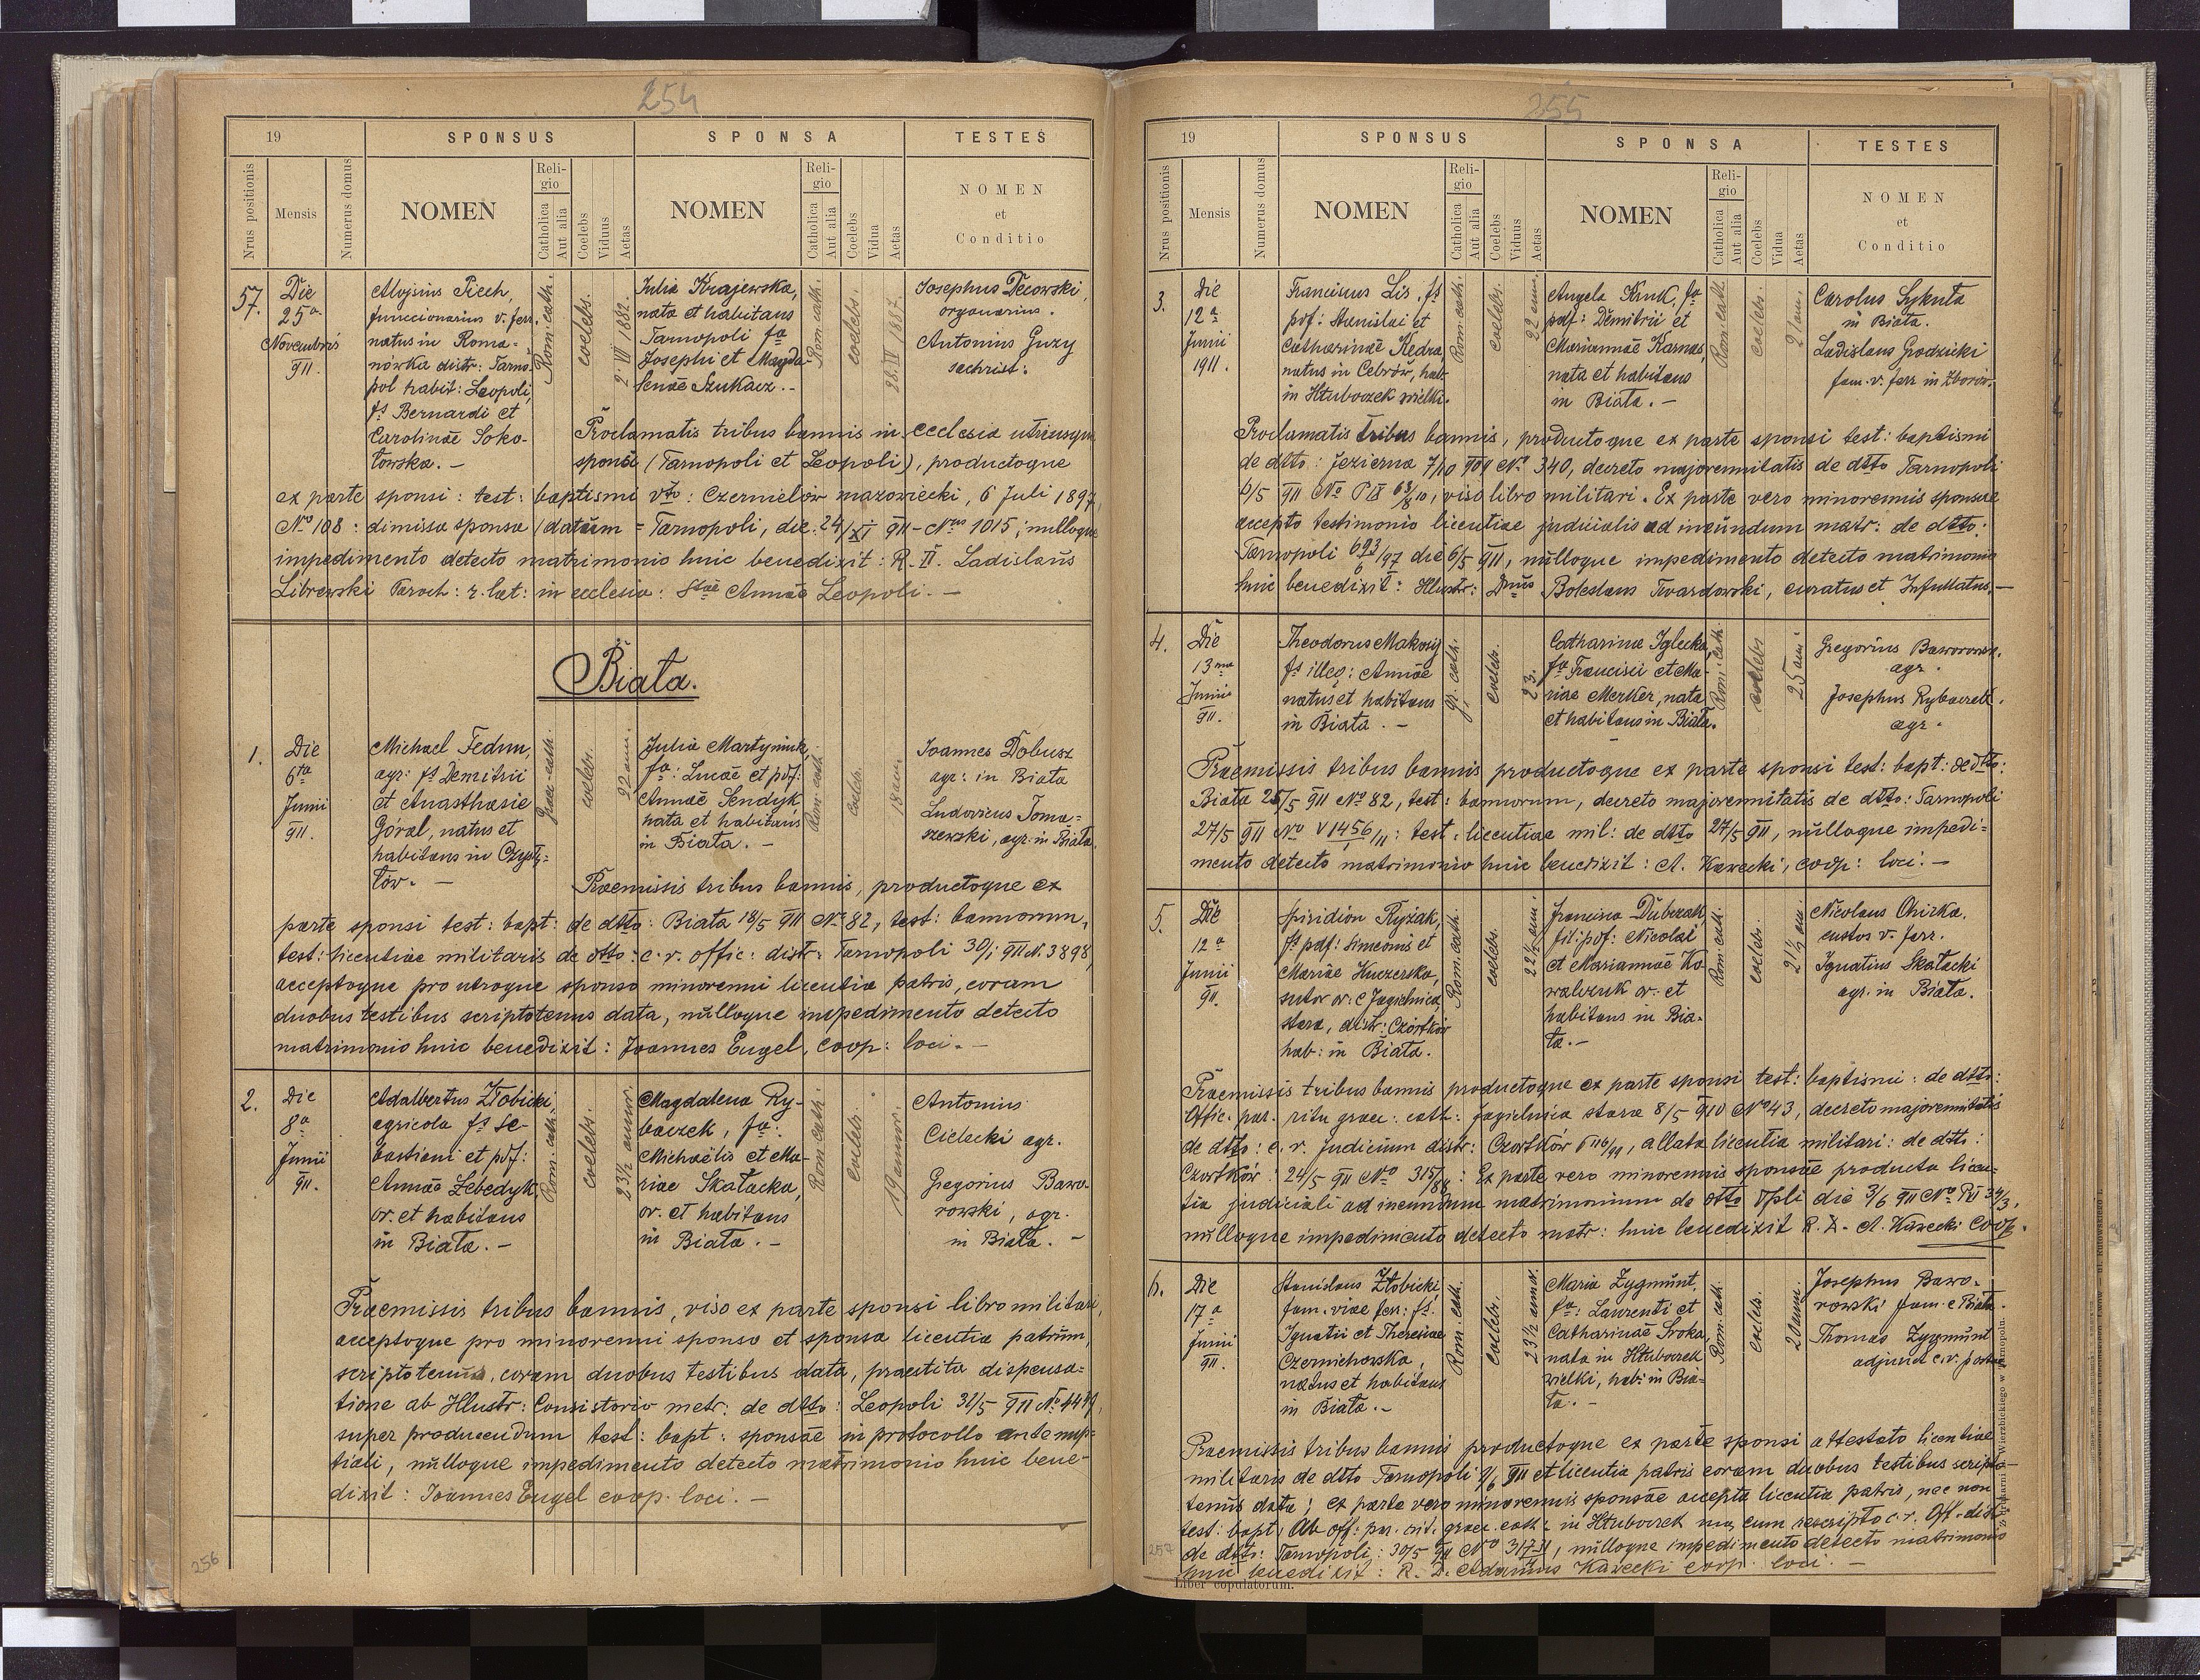 254
19
SPONSUS
SPONSA
TESTES
Nrus positionis
Mensis
Numerus domus
NOMEN
Religio
Catholica
Aut alia
Coelebs
Viduus
Aetas
NOMEN
Religio
Catholica
Aut alia
Coelebs
Vidua
Aetas
NOMEN
et
Conditio
57.
Die
25a
Novembris
911.
Aloysius Piech,
funccionarius v. ferr.
natus in Roma-
nówka distr: Tarno-
pol habit: Leopoli,
fs Bernardi et
Carolinae Soko-
łowska. -
Rom: cath.
coelebs.
2. VI 1882.
Julia Krajewska,
nata et habitans
Tarnopoli fa
Josephi et Magda-
lenae Szukacz. -
Rom: cath.
coelebs.
Josephus Decowski,
organarius.
Antonius Guzy
sachrist:
Proclamatis tribus bannis in ecclesia utriusque
sponsi (Tarnopoli et Leopoli), productoque
ex parte sponsi: test: baptismi dtto: Czernielów mazowiecki, 6 Juli 1897,
No 108: dimissa sponsa (datum = Tarnopoli, die 24/XI 911 - Nrus 1015; nulloque
impedimento detecto matrimonio huic benedixit: R. D. Ladislaus
Librewski Paroch: r. lat: in ecclesia: Stae Annae Leopoli. -
Biała.
1.
Die
6ta
Junii
911.
Michael Fedun,
agr: fs Demitrii
et Anasthasie
Góral, natus et
habitans in Czysty-
łów. -
Graec-cath.
coelebs.
22 ann.
Julia Martyniuk,
fa: Lucae et pdf:
Annae Sendyk,
nata et habitans
in Biała. -
Rom: cath.
coelebs.
18 ann.
Joannes Dobusz
agr: in Biała
Ludovicus Toma-
szewski, agr: in Biała.
Praemissis tribus bannis, productoque ex
parte sponsi test: bapt: de dtto: Biała 18/5 911 No 82, test: bannorum,
test: licentiae militaris de dtto: c. r. offic: distr: Tarnopoli 30/i 911 N. 3898,
acceptoque pro utroque sponso minorenni licentia patris, coram
duobus testibus scriptotenus data, nulloque impedimento detecto
matrimonio huic benedixit: Joannes Engel, coop: loci. -
2.
Die
8a
Junii
911.
Adalbertus Złobicki
agricola fs Se-
bastiani et pdf:
Annae Lebedyk
or. et habitans
in Biała. -
Rom: cath.
coelebs.
23½ annor.
Magdalena Ry-
baczek, fa:
Michaelis et Ma-
riae Skałacka,
or. et habitans
in Biała. -
Rom: cath.
coelebs.
19 annor.
Antonius
Cielecki agr.
Gregorius Bawo-
rowski, agr.
in Biała. -
Praemissis tribus bannis, viso ex parte sponsi libro militari,
acceptoque pro minorenni sponso et sponsa licentia patrum,
scriptotenus, coram duobus testibus data, praestita dispensa-
tione ab Illustr: Consistorio metr: de dtto: Leopoli 31/5 911 No 4449,
super producendum test: bapt: sponsae in protocollo ante nup-
tiali, nulloque impedimento detecto matrimonio huic bene-
dixit: Joannes Engel coop. loci. -
256
255
19
SPONSUS
SPONSA
TESTES
Nrus positionis
Mensis
Numerus domus
NOMEN
Religio
Catholica
Aut alia
Coelebs
Viduus
Aetas
NOMEN
Religio
Catholica
Aut alia
Coelebs
Vidua
Aetas
NOMEN
et
Conditio
3.
Die
12a
Junii
1911.
Franciscus Lis, fs
pdf: Stanislai et
Catharinae Kedra,
natus in Cebrów, hab:
in Hłuboczek wielki.
Rom: cath.
coelebs.
22 ann.
Angela Kruk, fa
pdf: Demitrii et
Mariannae Karnas,
nata et habitans
in Biała. -
Rom: cath.
coelebs.
21 ann.
Carolus Sykuta
in Biała.
Ladislaus Grodzicki
fam. v. ferr in Zborów.
Proclamatis tribus bannis, productoque ex parte sponsi test: baptismi
de dtto: Jezierna 7/10 909 No 340, decreto majorennitatis de dtto Tarnopoli
6/5 911 No P IX 63/8/10, viso libro militari. Ex parte vero minorennis sponsae
accepto testimonio licentiae judicialis ad ineundum matr: de dtto:
Tarnopoli die 6/5 911, nulloque impedimento detecto matrimonio
huic benedixit: Illustr: Dnus Boleslaus Twardowski, curatus et Infullatus. -
4.
Die
13ma
Junii
911.
Theodorus Makowij
fs illeg: Annae
natus et habitans
in Biała. -
gr. cath.
coelebs.
23.
Catharina Iglecka,
fa Francisci et Ma-
riae Merker, nata
et habitans in Biała.
Rom: cath.
coelebs
25 ann.
Gregorius Baworowski.
agr.
Josephus Rybaczek.
agr.
Praemissis tribus bannis productoque ex parte sponsi test: bapt: de dtto:
Biała 25/5 911 No 82, test: bannorum, decreto majorennitatis de dtto: Tarnopoli
27/5 911 No V 1456/11: test: licentiae mil: de dtto 27/5 911, nulloque impedi-
mento detecto matrimonio huic benedixit: A. Kawecki, coop: loci. -
5.
Die
12a
Junii
911.
Spiridion Ryżak,
fs pdf: Simeonis et
Mariae Kuczerska,
sutor or: e Jagielnica
stara, distr: Czortków
hab: in Biała.
Rom: cath.
coelebs.
22½ ann.
Francisca Dubczak
fil: pdf: Nicolai
et Mariannae Ko-
walczuk or: et
habitans in Bia-
ła. -
Rom: cath.
coelebs.
21½ ann.
Nicolaus Chirka.
custos v. ferr.
Ignatius Skałacki
agr. in Biała.
Praemissis tribus bannis productoque ex parte sponsi test: baptismi: de dtto:
Offic. par. ritu graec. cath: Jagielnica stara 8/5 910 No 43, decreto majorennitatis
de dtto: c. r. Judicium distr: Czortków, allata licentia militari: de dtto:
Czortków: 24/5 911 No: Ex parte vero minorennis sponsae producta licen-
tia judiciali ad ineundum matrimonium de dtto Tpli die 3/6 911 No
nulloque impedimento detecto matr: huic benedixit R. D. A. Kawecki Coop.
6.
Die
17a
Junii
911.
Stanislaus Złobicki,
fam. viae ferr: fs.
Ignatii et Theresiae
Czernichowska,
natus et habitans
in Biała. -
Rom: cath.
coelebs.
23½ annor.
Maria Zygmunt,
fa: Laurenti et
Catharinae Sroka,
nata in Hłuboczek
wielki, hab: in Bia-
ła. -
Rom: cath.
coelebs.
20 ann.
Josephus Bawo-
rowski fam. e Biała.
Thomas Zygmunt
adjunct c. v.
Praemissis tribus bannis productoque ex parte sponsi attestato licentiae
militaris de dtto Tarnopoli 9/6 911 et licentia patris coram duobus testibus scripto-
tenus data; ex parte vero minorennis sponsae accepta licentia patris, nec non
test: bapt: Ab off: par. rit. graec. cath: in Hłuboczek cum rescripto c. r. Off. distr:
de dtto: Tarnopoli: 30/5 911 No, nulloque impedimento detecto matrimonio
huic benedixit: R. D. Adamus Kawecki coop. loci. -
257
Liber copulatorum.
Z drukarni Wierzbickiego w Tarnopolu.